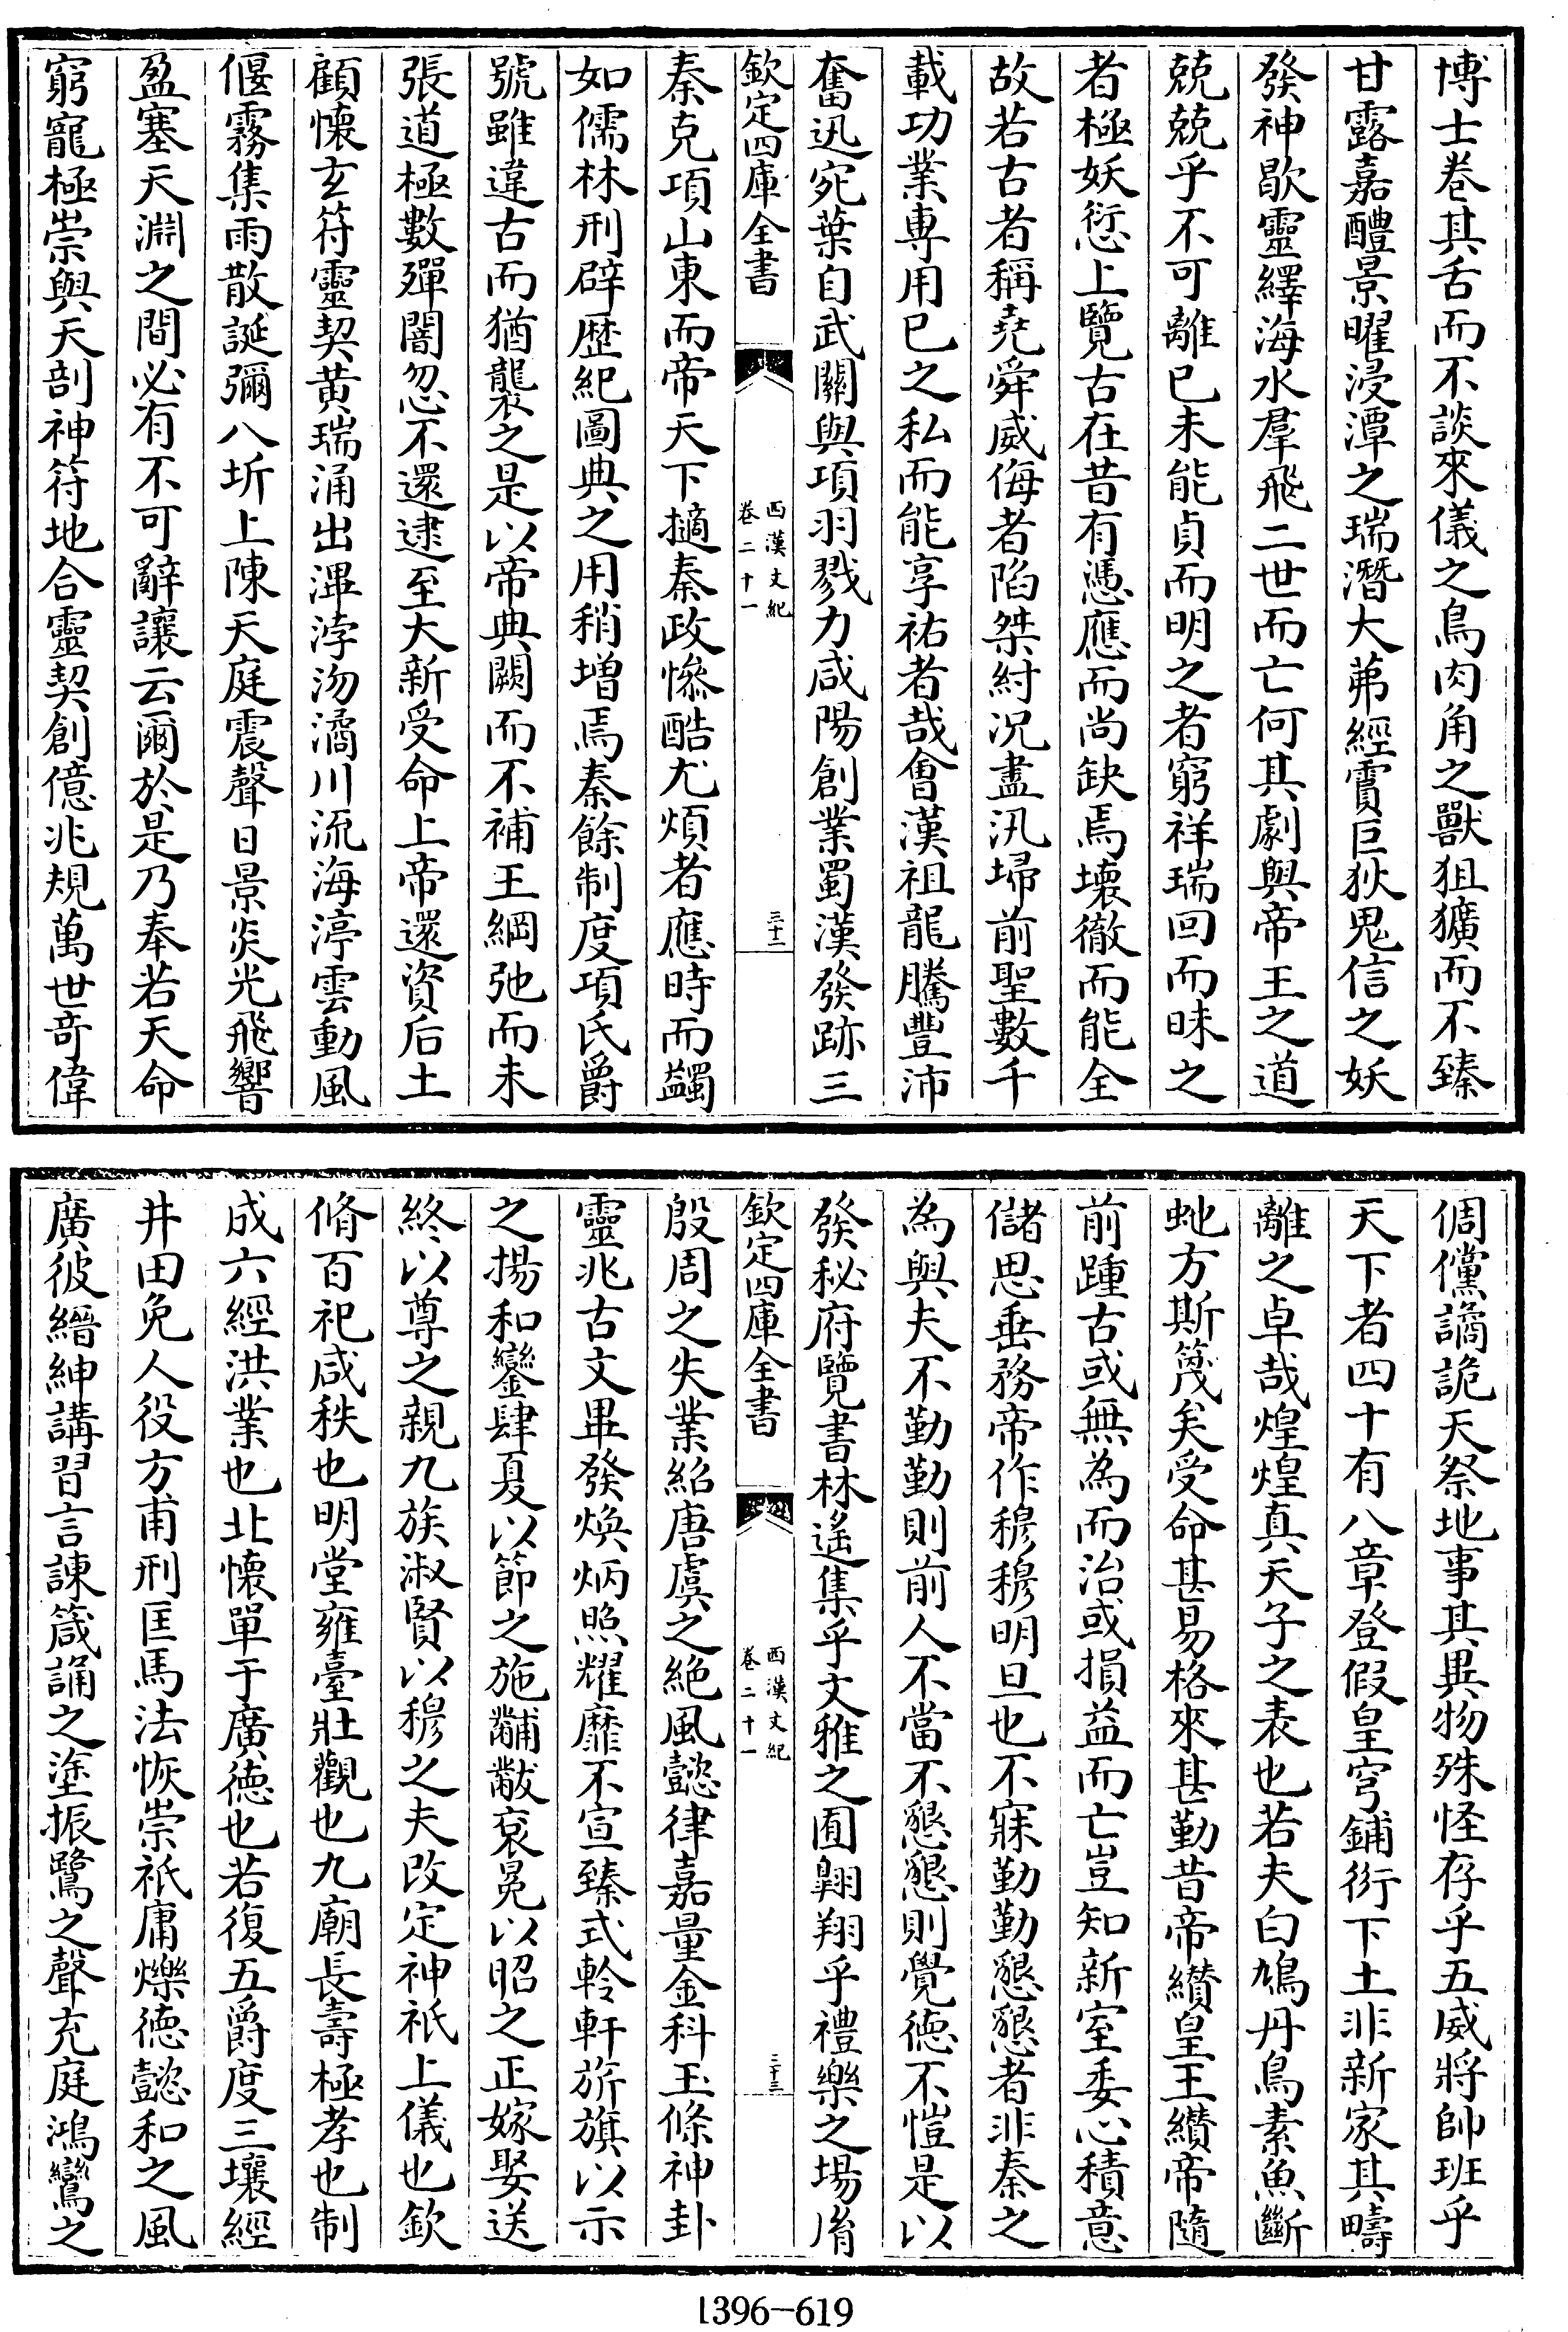 博士卷其舌而不談來儀之鳥肉角之獸狙獷而不臻
甘露嘉醴景曜浸潭之瑞潛大茀經霣巨狄鬼信之妖
發神歇靈繹海水羣飛二世而亡何其劇與帝王之道
兢兢乎不可離已未能貞而明之者窮祥瑞回而昧之
者極妖愆上覽古在昔有憑應而尚缺焉壞徹而能全
故若古者稱堯舜威侮者陷桀紂况盡汛埽前聖數千
載功業專用已之私而能享祐者哉會漢祖龍騰豐沛
奮迅宛葉自武關與項羽戮力咸陽創業蜀漢發跡三
欽定四庫全書
西漢文紀
卷二十一
三十二
秦克項山東而帝天下擿秦政慘酷尤煩者應時而蠲
如儒林刑辟歴紀圖典之用稍增焉秦餘制度項氏爵
號雖違古而猶襲之是以帝典闕而不補王綱弛而未
張道極數殫闇忽不還逮至大新受命上帝還資后土
顧懷玄符靈契黄瑞涌出滭浡沕潏川流海渟雲動風
偃霧集雨散誕彌八圻上陳天庭震聲日景炎光飛響
盈塞天淵之間必有不可辭讓云爾於是乃奉若天命
窮寵極崇與天剖神符地合靈契創億兆規萬世奇偉
倜儻譎詭天祭地事其異物殊怪存乎五威將帥班乎
天下者四十有八章登假皇穹鋪衍下土非新家其疇
離之卓哉煌煌真天子之表也若夫白鳩丹烏素魚斷
虵方斯篾矣受命甚易格來甚勤昔帝纘皇王纘帝隨
前踵古或無為而治或損益而亡豈知新室委心積意
儲思垂務帝作穆穆明旦也不寐勤勤懇懇者非秦之
為與夫不勤勤則前人不當不懇懇則覺徳不愷是以
發秘府覽書林遙集乎文雅之囿翺翔乎禮樂之場𦙍
欽定四庫全書
西漢文紀
卷二十一
三十三
殷周之失業紹唐虞之絶風懿律嘉量金科玉條神卦
靈兆古文畢發煥炳照耀靡不宣臻式軨軒旂旗以示
之揚和鸞肆夏以節之施黼黻衮冕以昭之正嫁娶送
終以尊之親九族淑賢以穆之夫改定神祇上儀也欽
脩百祀咸秩也明堂雍臺壯觀也九廟長壽極孝也制
成六經洪業也北懷單于廣徳也若復五爵度三壤經
井田免人役方甫刑匡馬法恢崇祇庸爍徳懿和之風
廣彼縉紳講習言諫箴誦之塗振鷺之聲充庭鴻鸞之
1396-619